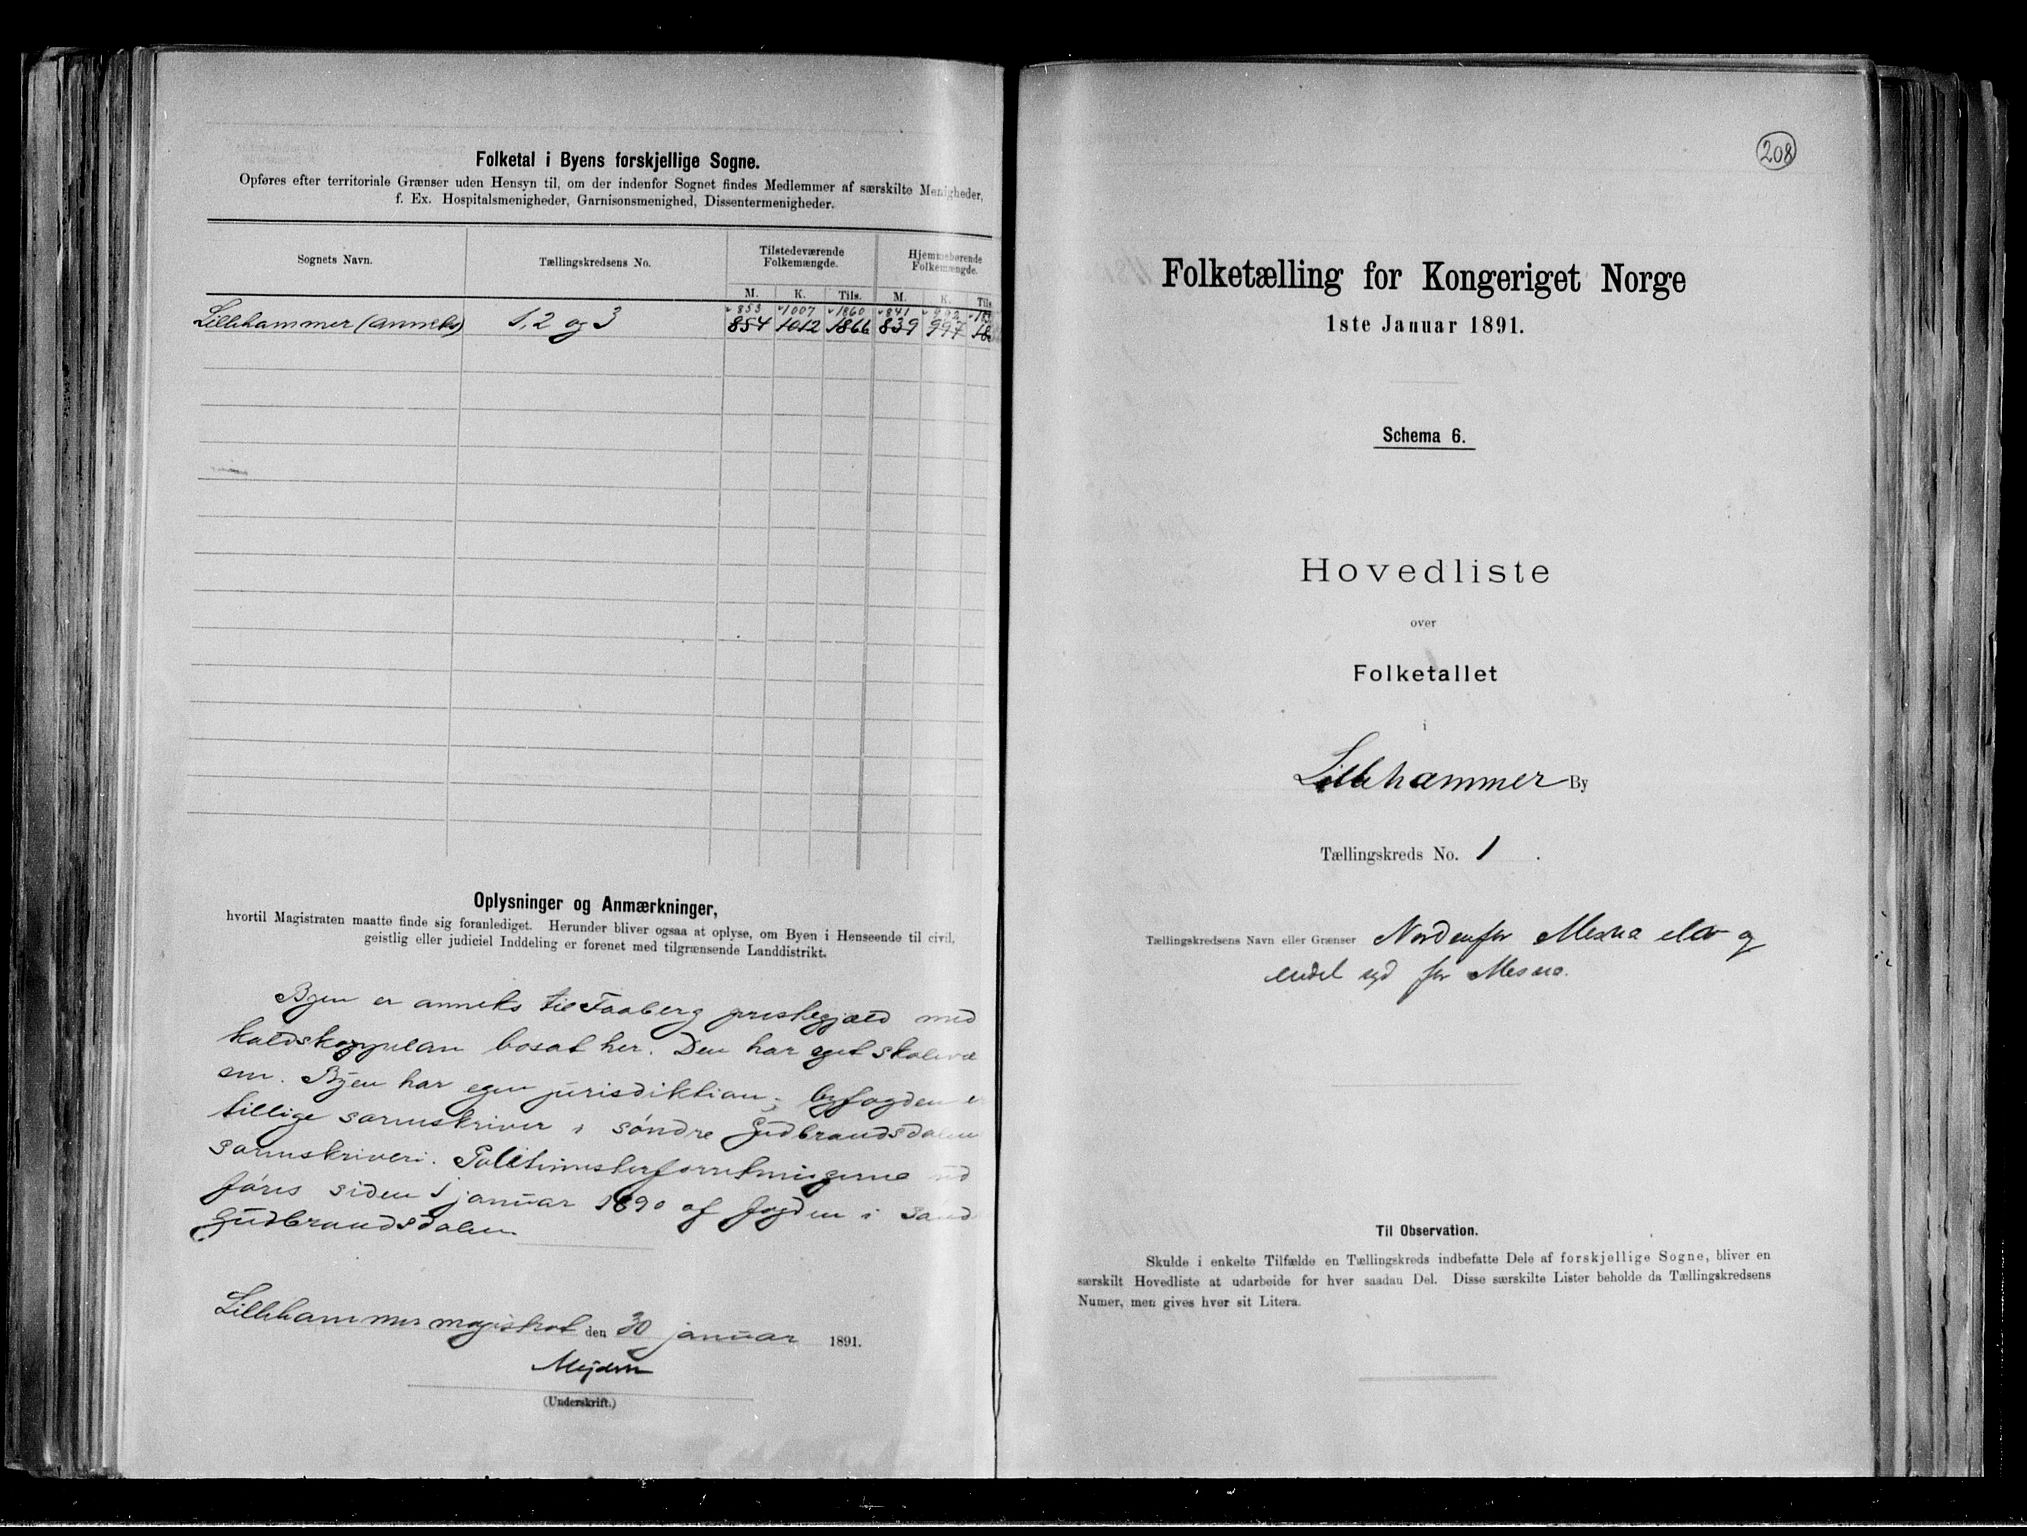 Folketal i Byens forskjellige Sogne.
Opføres efter territoriale Grænser uden Hensyn til, om der indenfor Sognet findes Medlemmer af særskilte Menigheder,
f. Ex. Hospitalsmenigheder, Garnisonsmenighed, Dissentermenigheder.
Sognets Navn. Tællingskredsens No. Tilstedeværende Folkemængde. Hjemmehørende Folkemængde.
M. K. Tils. M. K. Tils.
853 1007 1860 841 992
Lillehammer (anneks) 1, 2 og 3 854 1012 1866 839 997
Oplysninger og Anmærkninger,
hvortil Magistraten maatte finde sig foranlediget. Herunder bliver ogsaa at oplyse, om Byen i Henseende til civil,
geistlig eller judiciel Inddeling er forenet med tilgrænsende Landdistrikt.
Byen er anneks til Faaberg prestegjæld med
kaldskappelan bosat her. Den har eget skolevæ
sen. Byen har egen jurisdiktion; byfogden er
tillige sorenskriver i søndre Gudbrandsdalens
sorenskriveri. Politimesterforretningerne ud
føres siden 1 januar 1890 af fogden i sønd
Gudbrandsdalen.
Lillehammer magistrat den 30 januar 1891.
(Underskrift.)
208
Folketælling for Kongeriget Norge
1ste Januar 1891.
Schema 6.
Hovedliste
over
Folketallet
i
Lillehammer By
Tællingskreds No. 1.
Tællingskredsens Navn eller Grænser Nordenfor Mesna elv og
endel syd for Mesna.
Til Observation.
Skulde i enkelte Tilfælde en Tællingskreds indbefatte Dele af forskjellige Sogne, bliver en
særskilt Hovedliste at udarbeide for hver saadan Del. Disse særskilte Lister beholde da Tællingskredsens
Numer, men gives hver sit Litera.